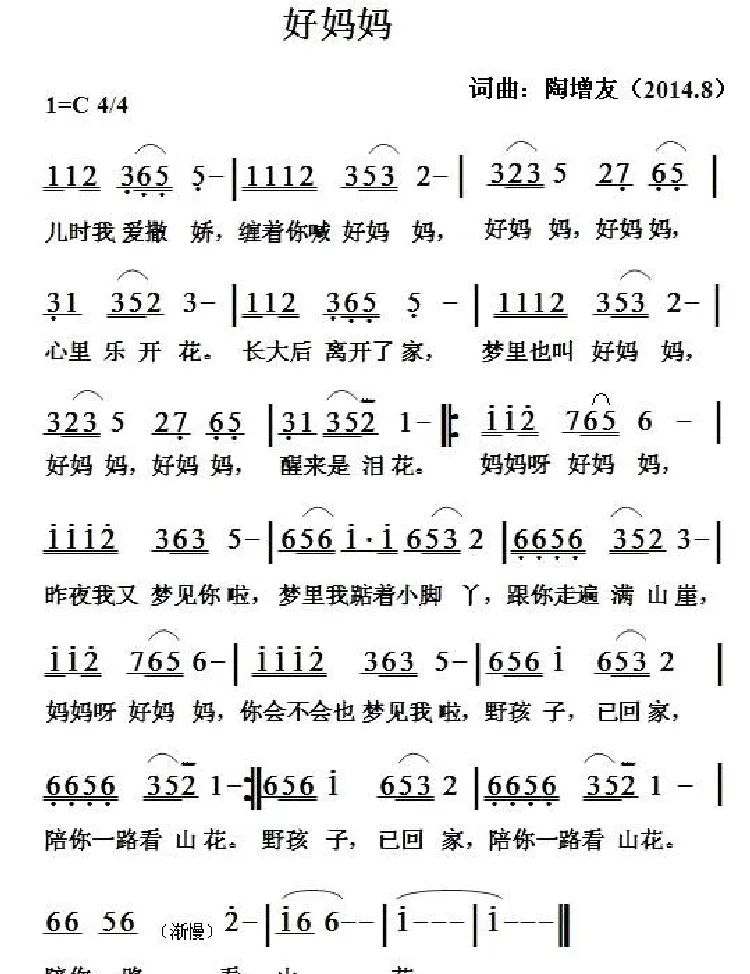 好妈妈
词曲：陶增友（2014.8）
1=C 4/4
112 365 5-|1112 353 2-| 323 5 27 65 |
儿时我 爱撒 娇，缠着你喊 好妈 妈， 好妈 妈，好妈 妈，
31 352 3-|112 365 5-|1112 353 2-|
心里 乐 开 花。 长大后 离开了 家， 梦里也叫 好妈 妈，
323 5 27 65|31 352 1-‖: 112 765 6 -|
好妈 妈，好妈 妈， 醒来是 泪花。 妈妈呀 好妈 妈，
1112 363 5-|656 1·1 653 2|6656 352 3-|
昨夜我又 梦见你 啦，梦里我踮着小脚 丫，跟你走遍 满 山 崖，
112 765 6-|1112 363 5-|656 1 653 2|
妈妈呀 好妈 妈，你会不会也 梦见我 啦，野孩 子，已回 家，
6656 352 1-:‖656 1 653 2|6656 352 1-|
陪你一路看 山 花。野孩 子，已回 家，陪你一路看 山花。
66 56 （渐慢） 2-|16 6--|1---|1---‖
陪你一路 看 山 花